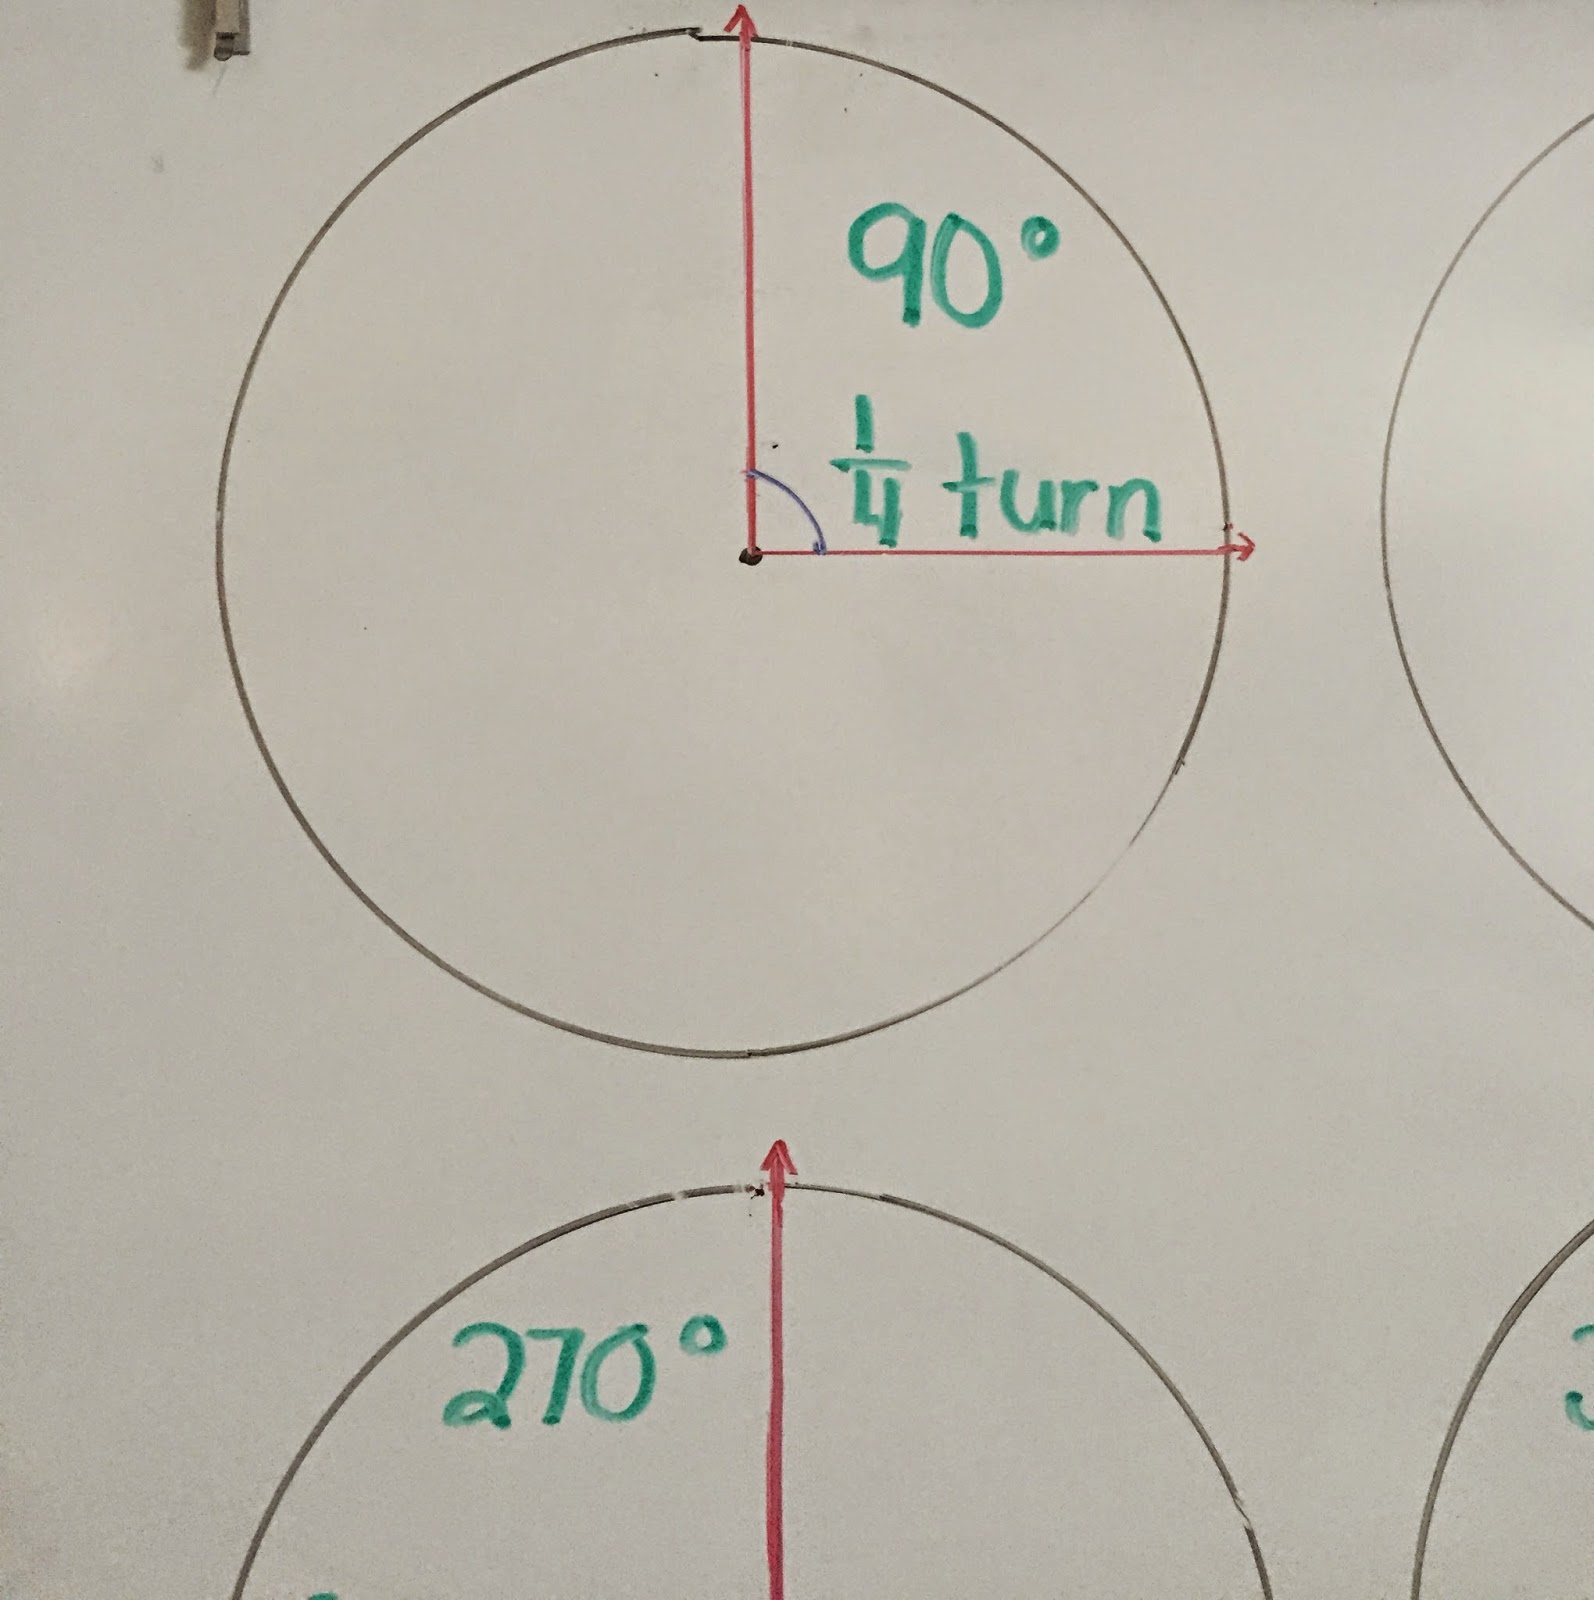 90°
1/4 turn
270°